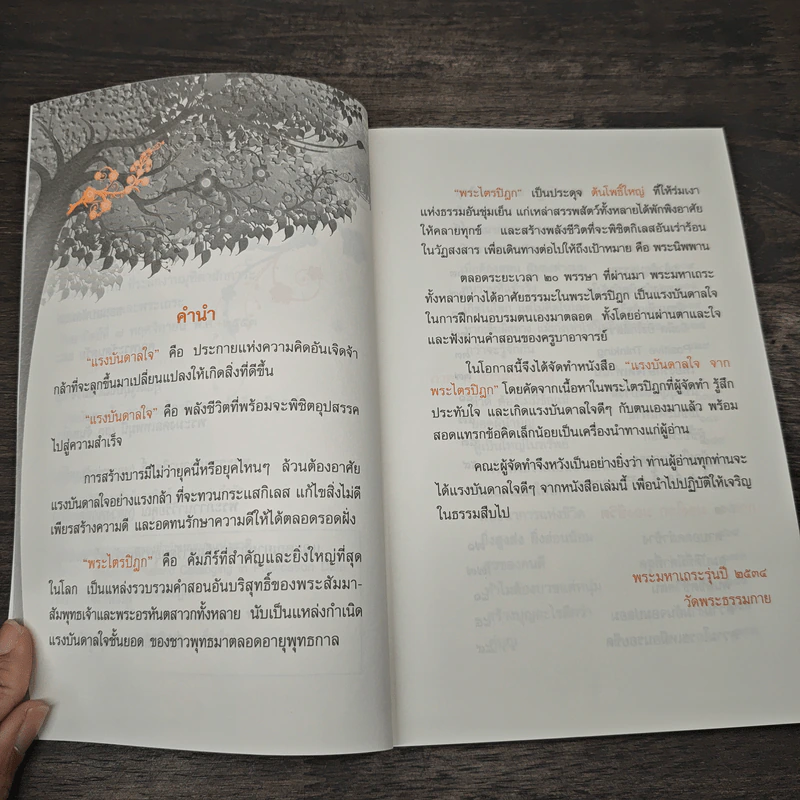 คำนำ
"แรงบันดาลใจ" คือ ประกายแห่งความคิดอันเจิดจ้า
กล้าที่จะลุกขึ้นมาเปลี่ยนแปลงให้เกิดสิ่งที่ดีขึ้น
"แรงบันดาลใจ" คือ พลังชีวิตที่พร้อมจะพิชิตอุปสรรค
ไปสู่ความสำเร็จ
การสร้างบารมีไม่ว่ายุคนี้หรือยุคไหนๆ ล้วนต้องอาศัย
แรงบันดาลใจอย่างแรงกล้า ที่จะทวนกระแสกิเลส แก้ไขสิ่งไม่ดี
เพียรสร้างความดี และอดทนรักษาความดีให้ได้ตลอดรอดฝั่ง
"พระไตรปิฎก" คือ คัมภีร์ที่สำคัญและยิ่งใหญ่ที่สุด
ในโลก เป็นแหล่งรวบรวมคำสอนอันบริสุทธิ์ของพระสัมมา-
สัมพุทธเจ้าและพระอรหันตสาวกทั้งหลาย นับเป็นแหล่งกำเนิด
แรงบันดาลใจชั้นยอด ของชาวพุทธมาตลอดอายุพุทธกาล
"พระไตรปิฎก" เป็นประดุจ ต้นโพธิ์ใหญ่ ที่ให้ร่มเงา
แห่งธรรมอันชุ่มเย็น แก่เหล่าสรรพสัตว์ทั้งหลายได้พักพิงอาศัย
ให้คลายทุกข์ และสร้างพลังชีวิตที่จะพิชิตกิเลสอันเร่าร้อน
ในวัฏสงสาร เพื่อเดินทางต่อไปให้ถึงเป้าหมาย คือ พระนิพพาน
ตลอดระยะเวลา ๒๐ พรรษา ที่ผ่านมา พระมหาเถระ
ทั้งหลายต่างได้อาศัยธรรมะในพระไตรปิฎก เป็นแรงบันดาลใจ
ในการฝึกฝนอบรมตนเองมาตลอด ทั้งโดยอ่านผ่านตาและใจ
และฟังผ่านคำสอนของครูบาอาจารย์
ในโอกาสนี้จึงได้จัดทำหนังสือ "แรงบันดาลใจ จาก
พระไตรปิฎก" โดยคัดจากเนื้อหาในพระไตรปิฎกที่ผู้จัดทำ รู้สึก
ประทับใจ และเกิดแรงบันดาลใจดีๆ กับตนเองมาแล้ว พร้อม
สอดแทรกข้อคิดเล็กน้อยเป็นเครื่องนำทางแก่ผู้อ่าน
คณะผู้จัดทำจึงหวังเป็นอย่างยิ่งว่า ท่านผู้อ่านทุกท่านจะ
ได้แรงบันดาลใจดีๆ จากหนังสือเล่มนี้ เพื่อนำไปปฏิบัติให้เจริญ
ในธรรมสืบไป
พระมหาเถระรุ่นปี ๒๕๓๔
วัดพระธรรมกาย